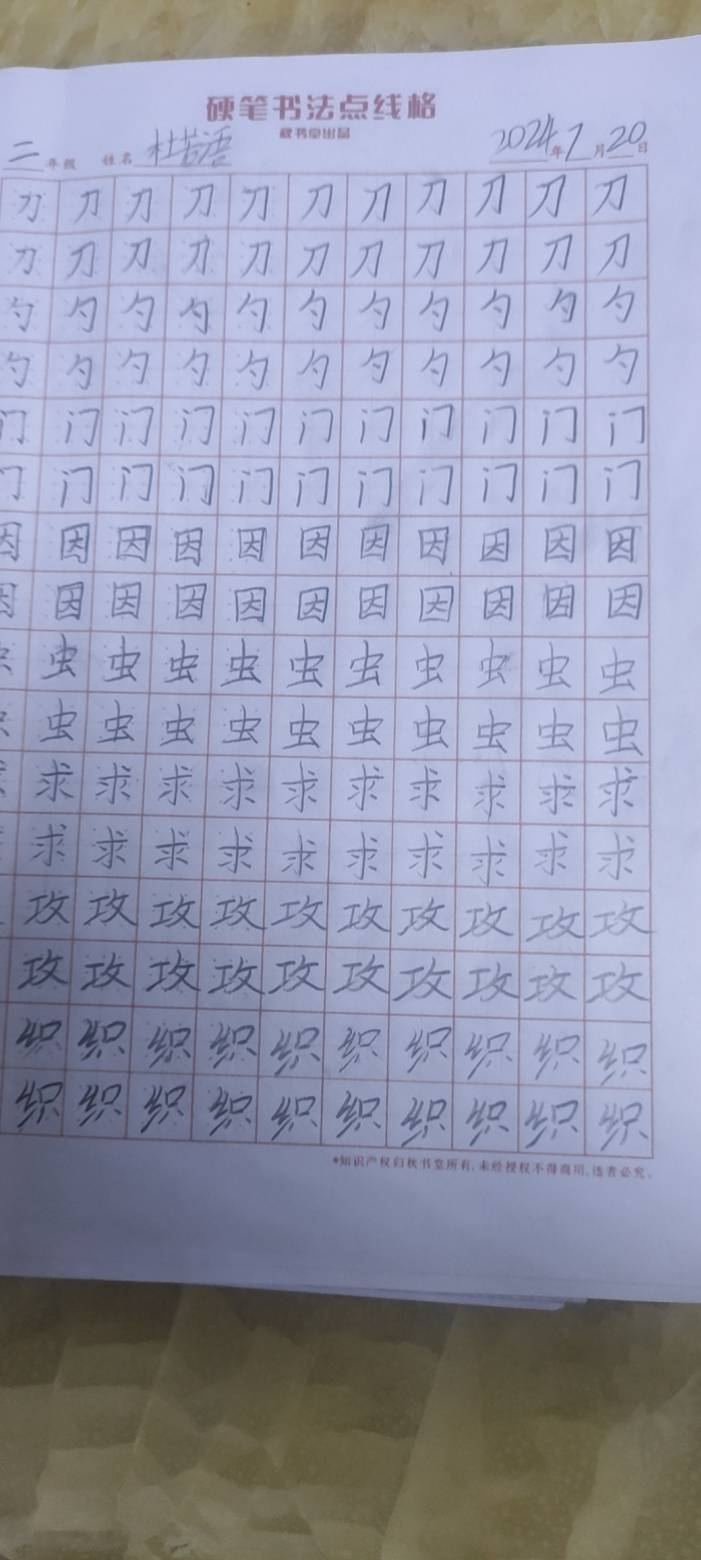 硬笔书法点线格
秋书堂出品
二年级 姓名 杜若语 2024年7月20日
刀刀刀刀刀刀刀刀刀刀刀
刀刀刀刀刀刀刀刀刀刀刀
勺勺勺勺勺勺勺勺勺勺勺
勺勺勺勺勺勺勺勺勺勺勺
门门门门门门门门门门门
门门门门门门门门门门门
因因因因因因因因因因因
因因因因因因因因因因因
虫虫虫虫虫虫虫虫虫虫
虫虫虫虫虫虫虫虫虫虫
求求求求求求求求求求
求求求求求求求求求求
攻攻攻攻攻攻攻攻攻攻
攻攻攻攻攻攻攻攻攻攻
织织织织织织织织织织
织织织织织织织织织织
*知识产权归秋书堂所有,未经授权不得商用,违者必究。